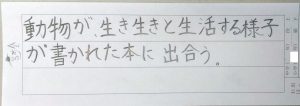 動物が、生き生きと生活する様子
が書かれた本に出合う。